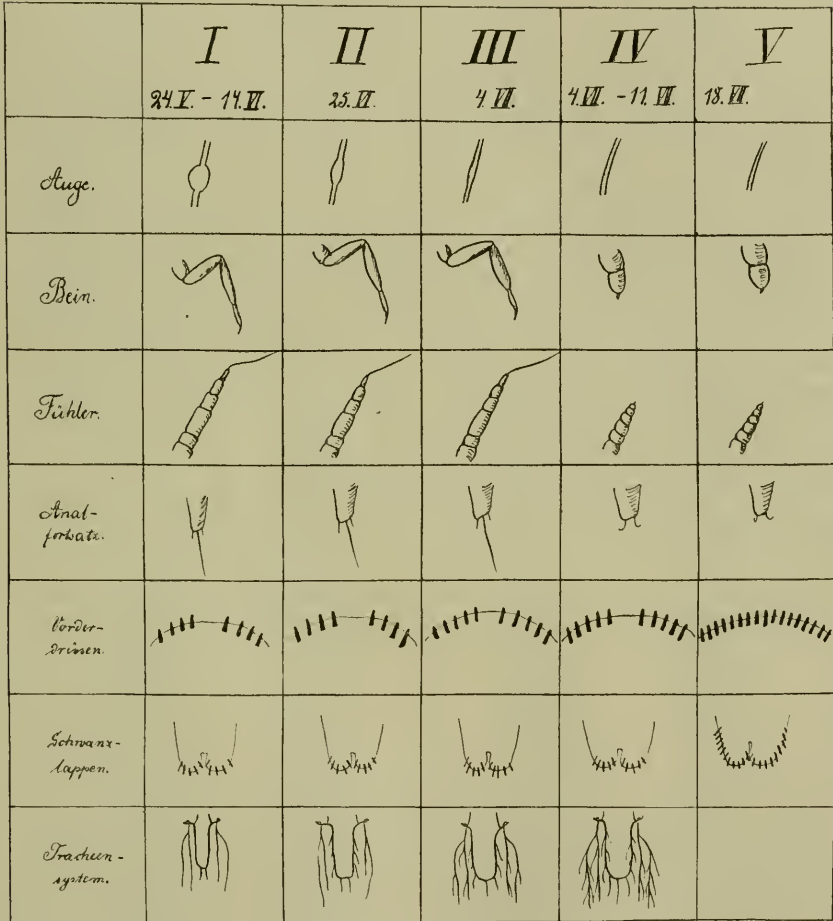 I II III IV V
24.V. - 14.VI. 25.VI. 4.VII. 4.VII. - 11.VII. 18.VII.
Auge.
Bein.
Fühler.
Anal-
fortsatz.
Vorder-
drüsen.
Schwanz-
lappen.
Tracheen-
system.